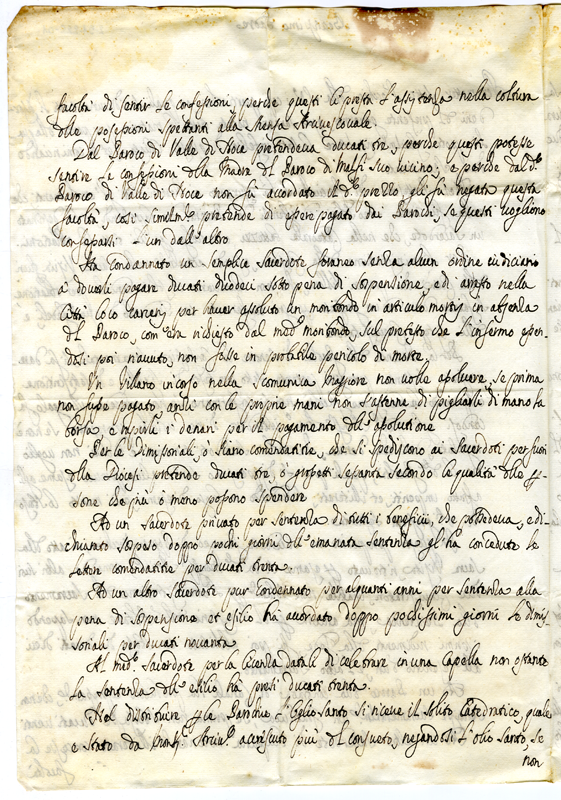 facoltà di sentir le confessioni, perche questi li presta l'assistenza nella coltura
delle possessioni spettanti alla Mensa Arcivescovale.
Dal Paroco di Valle di Noce pretendeva ducati tre, perche questi potesse
sentire le confessioni della Madre del Paroco di Malfi suo vicino, e perche dal d.o
Paroco di Valle di Noce non fù accordato il d.o prezzo gli fù negata questa
facoltà, così similm.te pretende di essere pagato dai Parochi, se questi vogliono
confessarsi l'un dall'altro
Ha condannato un semplice sacerdote foraneo senza alcun ordine iudiciario
à doverli pagare ducati duodeci sotto pena di sospensione, ed'arresto nella
Città loco carceris per haver assoluto un moribondo in articulo mortis in assenza
del Paroco, com'era richiesto dal med.o moribondo, sul pretesto che l'infermo essen-
dosi poi riavuto, non fosse in probabile pericolo di morte.
Un Villano incorso nella scomunica Maggiore non volle assolvere, se prima
non fusse pagato, anzi con le proprie mani non s'astenne di pigliarli di mano la
borsa, e rapirli i denari per il pagamento dell'assolutione
Per le Dimissoriali, ò siano comendatitie, che si spediscono ai sacerdoti per fuori
della Diocesi pretende ducati tre, ò grossetti sessanta secondo la qualità delle per-
sone che più ò meno possono spendere
Ad un sacerdote privato per sentenza di tutti i beneficii, che possedeva, e di-
chiarato sospeso doppo pochi giorni dell'emanata sentenza gl'ha concedute le
lettere comendatitie per ducati trenta.
Ad un altro Sacerdote pur condennato per alquanti anni per sentenza alla
pena di sospensione et esilio hà accordato doppo pochissimi giorni le dimis-
soriali per ducati novanta
Al med.o sacerdote per la licenza datali di celebrare in una Capella non ostante
la sentenza dell'esilio hà presi ducati trenta.
Nel distribuire per le Parochie l'Oglio santo si riceve il solito Catedratico, quale
è stato da Arciv.o accresciuto più del consueto, negandosi l'olio santo, se
non